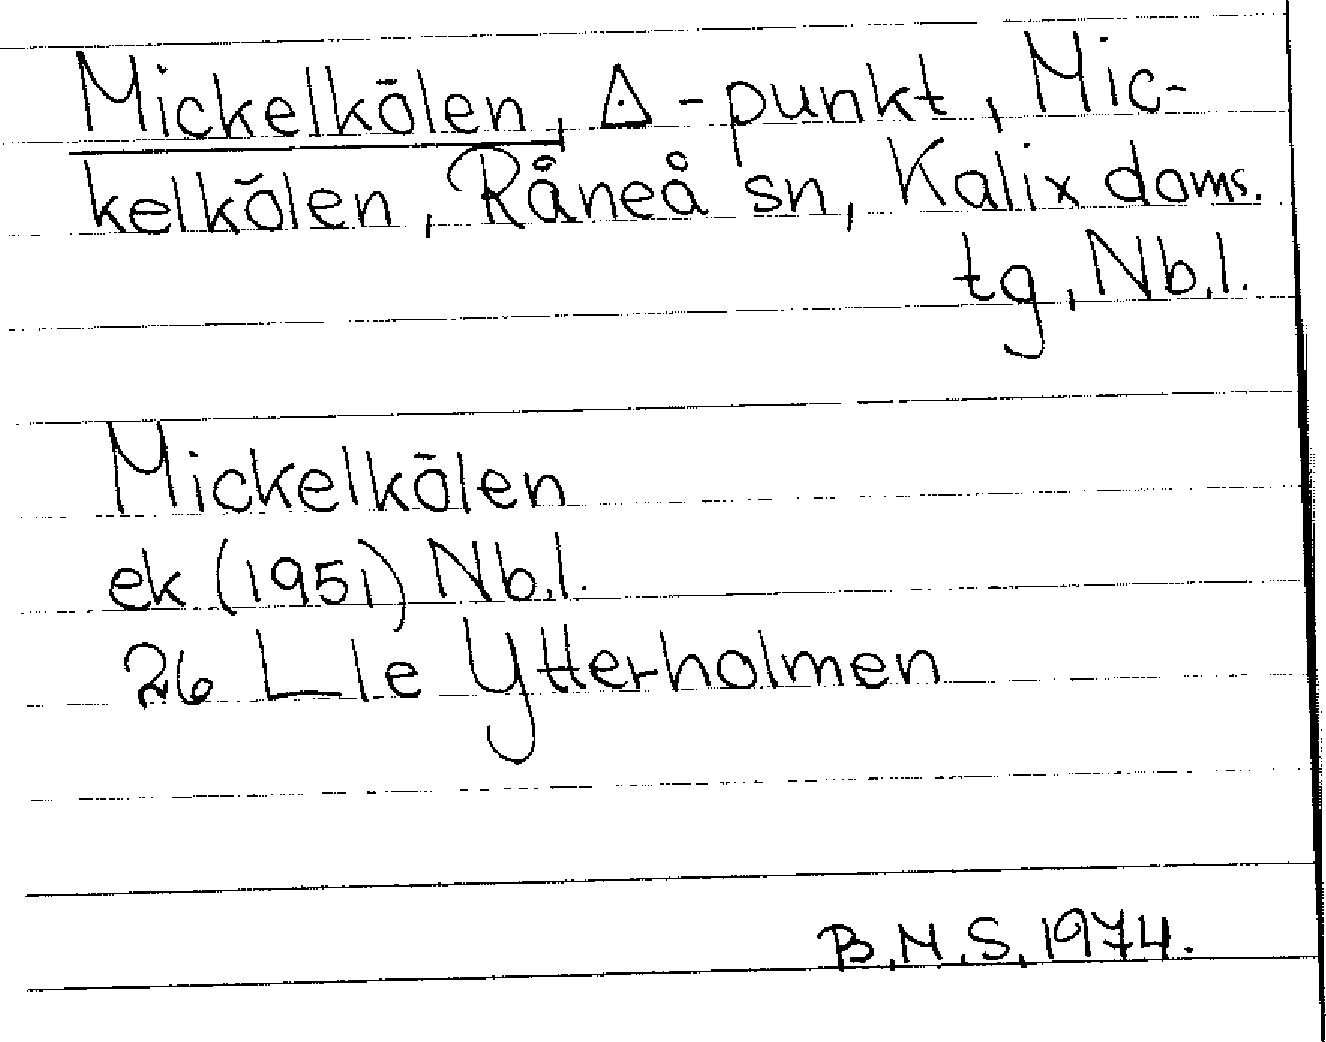 Mickelkölen, △-punkt, Mic-
kelkölen, Råneå sn, Kalix doms.
tg, Nb.l.
Mickelkölen
ek (1951) Nb.l.
26 L le Ytterholmen
B.M.S. 1974.